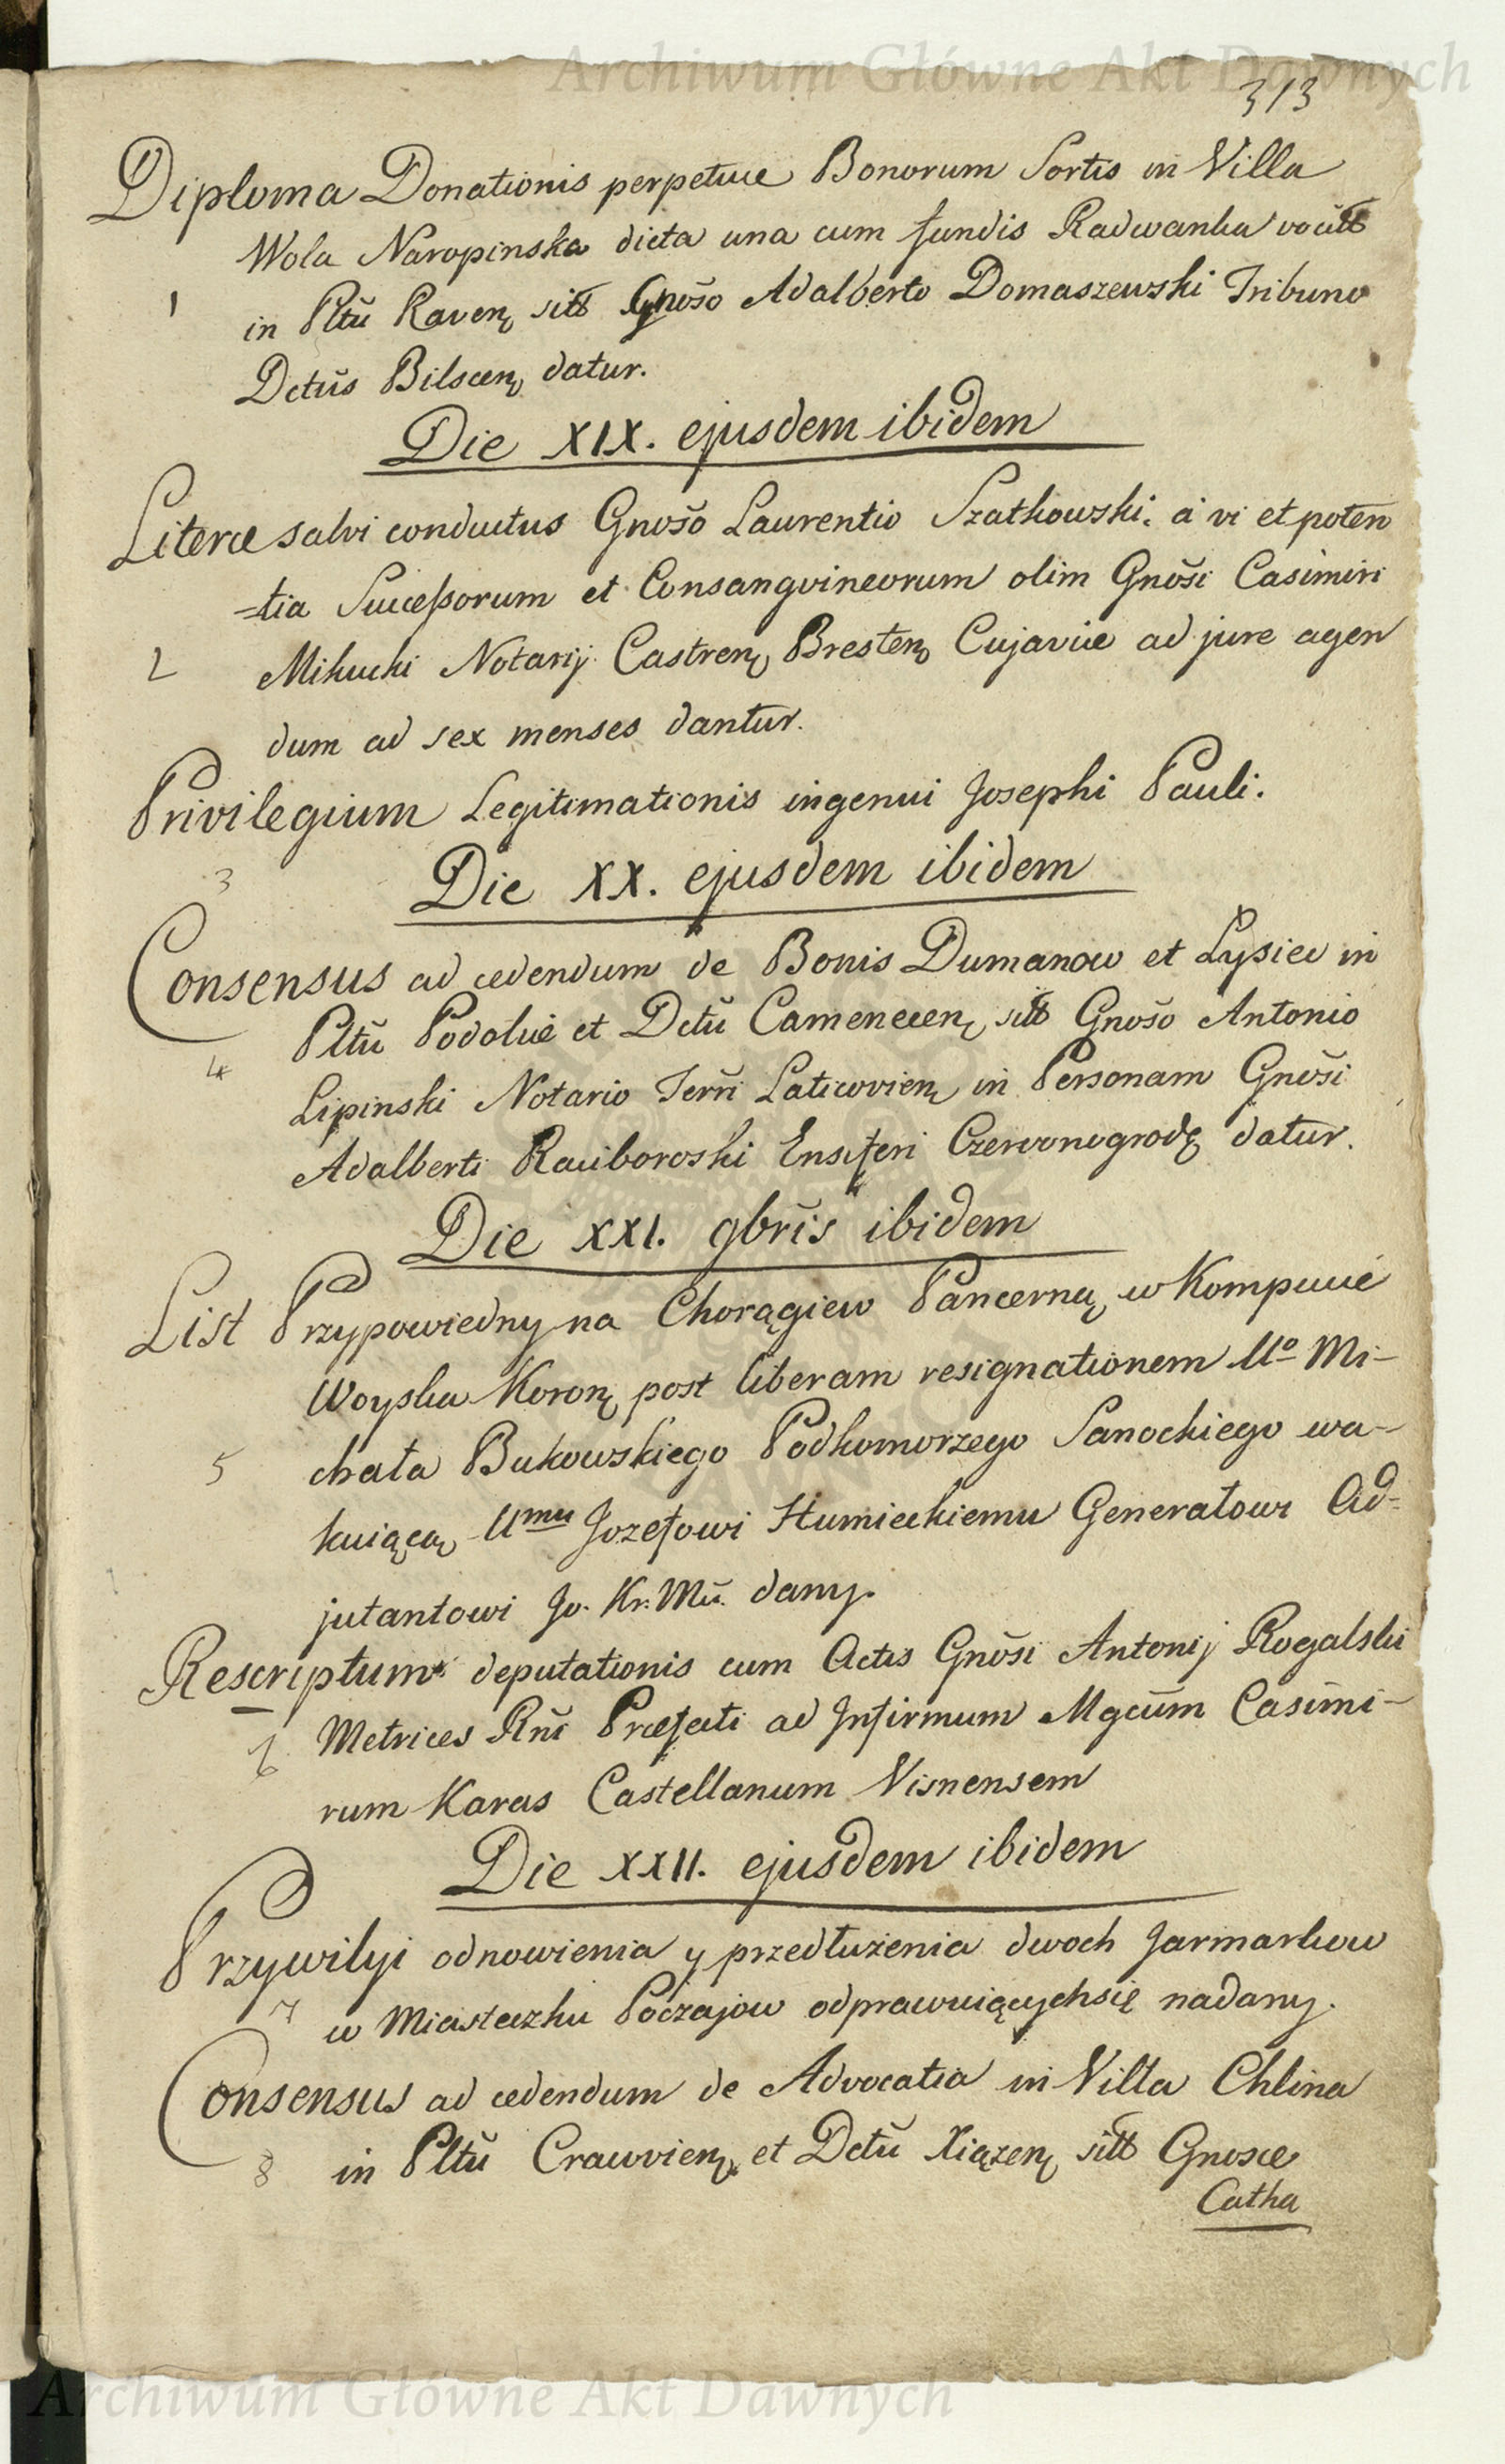 Archiwum Główne Akt Dawnych
313
Diploma Donationis perpetuæ Bonorum Sortis in Villa
Wola Naropinska dicta una cum fundis Radwanka vocatt
1 in Pltũ Raven sitt Gnõso Adalberto Domaszewski Tribuno
Dctũs Bilscen datur.
Die XIX. ejusdem ibidem
Literæ salvi conductus Gnõso Laurentio Szatkowski. à vi et poten
=tia Successorum et Consangvineorum olim Gnõsi Casimiri
2 Mikucki Notarij Castren Bresten Cujaviæ ad jure agen
dum ad sex menses dantur.
Privilegium Legitimationis ingenui Josephi Pauli.
3 Die XX. ejusdem ibidem
Consensus ad cedendum de Bonis Dumanow et Łysiec in
Pltũ Podoliæ et Dctũ Camenecen sitt Gnõso Antonio
4 Lipinski Notario Terrĩ Laticovien in Personam Gnõsi
Adalberti Raciboroski Ensiferi Czerwonogrod datur.
Die XXI. 9brĩs ibidem
List Przypowiedny na Chorągiew Pancerną w Kompucie
Woyska Koron post liberam resignationem Uº Mi-
5 chała Bukowskiego Podkomorzego Sanockiego wa-
kuiącą Umu Jozefowi Humieckiemu Generałowi Ad-
jutantowi Jo. Kr. Mci. dany.
Rescriptum deputationis cum Actis Gnõsi Antonij Rogalski
6 Metrices Rnĩ Præfecti ad Infirmum Mgcũm Casimi-
rum Karas Castellanum Visnensem
Die XXII. ejusdem ibidem
Przywilyi odnowienia y przedłużenia dwoch Jarmarkow
7 w Miasteczku Poczajow odprawuiącychsię nadany.
Consensus ad cedendum de Advocatia in Villa Chlina
8 in Pltũ Cracovien et Dctũ Xiązen sitt Gnosæ
Catha
Archiwum Główne Akt Dawnych